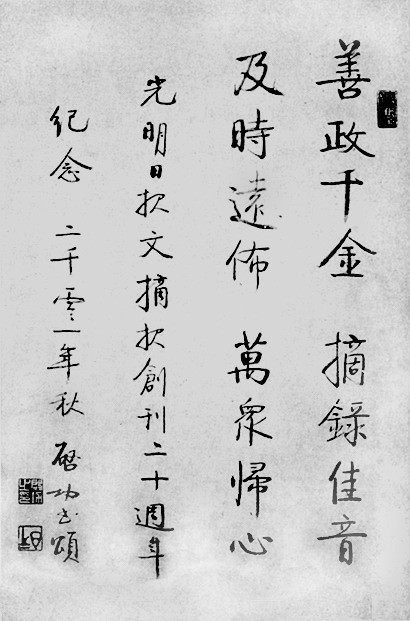 善政千金 摘錄佳音
及時遠佈 萬衆歸心
光明日报文摘报創刊二十週年
紀念 二千零一年秋 啓功书頌